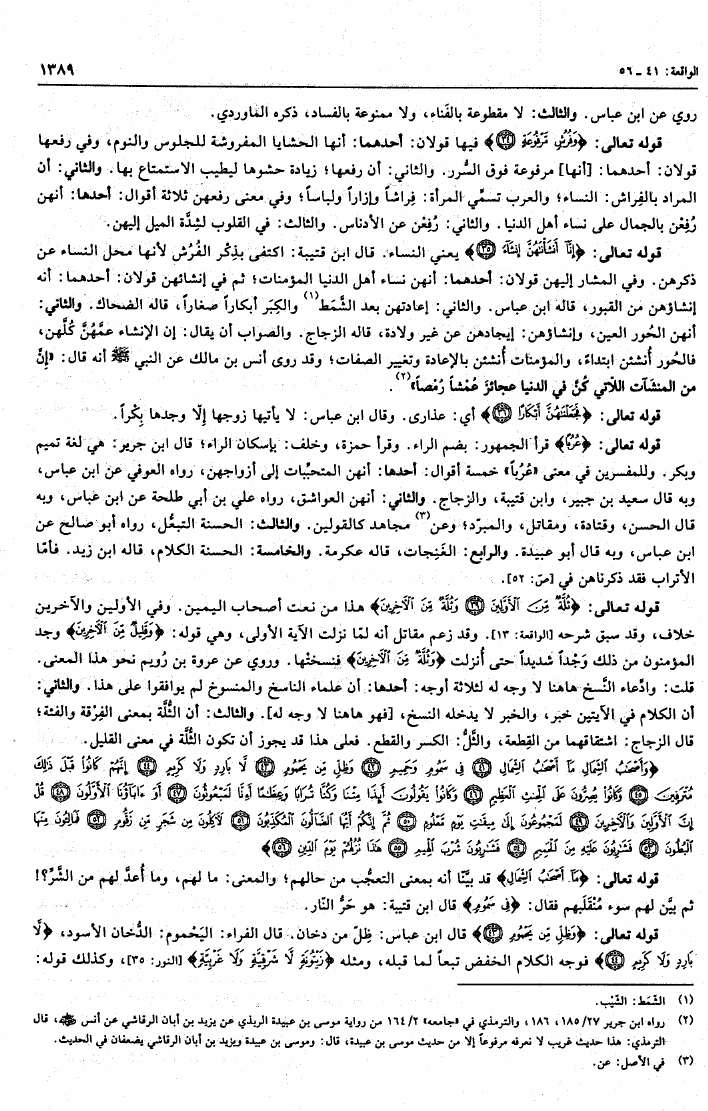 الواقعة: ٤١ ـ ٥٦
١٣٨٩
روي عن ابن عباس. والثالث: لا مقطوعة بالفَناء، ولا ممنوعة بالفساد، ذكره الماوردي.
قوله تعالى: ﴿وَفُرُشٍ مَّرْفُوعَةٍ ﴿٣٤﴾﴾ فيها قولان: أحدهما: أنها الحشايا المفروشة للجلوس والنوم، وفي رفعها
قولان: أحدهما: [أنها] مرفوعة فوق السُّرر. والثاني: أن رفعها؛ زيادة حشوها ليطيب الاستمتاع بها. والثاني: أن
المراد بالفِراش: النساء؛ والعرب تسمِّي المرأة: فِراشاً وإزاراً ولباساً؛ وفي معنى رفعهن ثلاثة أقوال: أحدها: أنهن
رُفِعْن بالجمال على نساء أهل الدنيا. والثاني: رُفِعْن عن الأدناس. والثالث: في القلوب لشِدَّة الميل إليهن.
قوله تعالى: ﴿إِنَّآ أَنشَأْنَٰهُنَّ إِنشَآءً ﴿٣٥﴾﴾ يعني النساء. قال ابن قتيبة: اكتفى بذِكْر الفُرُش لأنها محل النساء عن
ذكرهن. وفي المشار إليهن قولان: أحدهما: أنهن نساء أهل الدنيا المؤمنات؛ ثم في إنشائهن قولان: أحدهما: أنه
إنشاؤهن من القبور، قاله ابن عباس. والثاني: إعادتهن بعد الشَّمَط(١) والكِبَر أبكاراً صغاراً، قاله الضحاك. والثاني:
أنهن الحُور العين، وإنشاؤهن: إيجادهن عن غير ولادة، قاله الزجاج. والصواب أن يقال: إن الإنشاء عمَّهُنَّ كُلَّهن،
فالحُور أُنشئن ابتداءً، والمؤمنات أُنشئن بالإعادة وتغيير الصفات؛ وقد روى أنس بن مالك عن النبي ﷺ أنه قال: «إنَّ
من المنشَآت اللَّاتي كُنَّ في الدنيا عجائزَ عُمْشاً رُمْصاً»(٢).
قوله تعالى: ﴿فَجَعَلْنَٰهُنَّ أَبْكَارًا ﴿٣٦﴾﴾ أي: عذارى. وقال ابن عباس: لا يأتيها زوجها إلَّا وجدها بِكْراً.
قوله تعالى: ﴿عُرُبًا﴾ قرأ الجمهور: بضم الراء. وقرأ حمزة، وخلف: بإسكان الراء؛ قال ابن جرير: هي لغة تميم
وبكر. وللمفسرين في معنى «عُرُباً» خمسة أقوال: أحدها: أنهن المتحبِّبات إلى أزواجهن، رواه العوفي عن ابن عباس،
وبه قال سعيد بن جبير، وابن قتيبة، والزجاج. والثاني: أنهن العواشق، رواه علي بن أبي طلحة عن ابن عباس، وبه
قال الحسن، وقتادة، ومقاتل، والمبرّد؛ وعن(٣) مجاهد كالقولين. والثالث: الحسنة التبعُّل، رواه أبو صالح عن
ابن عباس، وبه قال أبو عبيدة. والرابع: الغَنِجات، قاله عكرمة. والخامسة: الحسنة الكلام، قاله ابن زيد. فأمّا
الأتراب فقد ذكرناهن في [ص: ٥٢].
قوله تعالى: ﴿ثُلَّةٌ مِّنَ ٱلْأَوَّلِينَ ﴿٣٩﴾ وَثُلَّةٌ مِّنَ ٱلْءَاخِرِينَ﴾ هذا من نعت أصحاب اليمين. وفي الأولين والآخرين
خلاف، وقد سبق شرحه [الواقعة: ١٣]. وقد زعم مقاتل أنه لمّا نزلت الآية الأولى، وهي قوله: ﴿وَقَلِيلٌ مِّنَ ٱلْءَاخِرِينَ﴾ وجد
المؤمنون من ذلك وَجْداً شديداً حتى أُنزلت ﴿وَثُلَّةٌ مِّنَ ٱلْءَاخِرِينَ﴾ فنسختْها. وروي عن عروة بن رُويم نحو هذا المعنى.
قلت: وادِّعاء النَّسخ هاهنا لا وجه له لثلاثة أوجه: أحدها: أن علماء الناسخ والمنسوخ لم يوافقوا على هذا. والثاني:
أن الكلام في الآيتين خبَر، والخبر لا يدخله النسخ، [فهو هاهنا لا وجه له]. والثالث: أن الثُّلَّة بمعنى الفِرْقة والفئة؛
قال الزجاج: اشتقاقهما من القِطعة، والثَّلُّ: الكسر والقطع. فعلى هذا قد يجوز أن تكون الثُّلَّة في معنى القليل.
﴿وَأَصْحَٰبُ ٱلشِّمَالِ مَآ أَصْحَٰبُ ٱلشِّمَالِ ﴿٤١﴾ فِى سَمُومٍ وَحَمِيمٍ ﴿٤٢﴾ وَظِلٍّ مِّن يَحْمُومٍ ﴿٤٣﴾ لَّا بَارِدٍ وَلَا كَرِيمٍ ﴿٤٤﴾ إِنَّهُمْ كَانُوا۟ قَبْلَ ذَٰلِكَ
مُتْرَفِينَ ﴿٤٥﴾ وَكَانُوا۟ يُصِرُّونَ عَلَى ٱلْحِنثِ ٱلْعَظِيمِ ﴿٤٦﴾ وَكَانُوا۟ يَقُولُونَ أَئِذَا مِتْنَا وَكُنَّا تُرَابًا وَعِظَٰمًا أَءِنَّا لَمَبْعُوثُونَ ﴿٤٧﴾ أَوَ ءَابَآؤُنَا ٱلْأَوَّلُونَ ﴿٤٨﴾ قُلْ
إِنَّ ٱلْأَوَّلِينَ وَٱلْءَاخِرِينَ ﴿٤٩﴾ لَمَجْمُوعُونَ إِلَىٰ مِيقَٰتِ يَوْمٍ مَّعْلُومٍ ﴿٥٠﴾ ثُمَّ إِنَّكُمْ أَيُّهَا ٱلضَّآلُّونَ ٱلْمُكَذِّبُونَ ﴿٥١﴾ لَءَاكِلُونَ مِن شَجَرٍ مِّن زَقُّومٍ ﴿٥٢﴾ فَمَالِـُٔونَ مِنْهَا
ٱلْبُطُونَ ﴿٥٣﴾ فَشَٰرِبُونَ عَلَيْهِ مِنَ ٱلْحَمِيمِ ﴿٥٤﴾ فَشَٰرِبُونَ شُرْبَ ٱلْهِيمِ ﴿٥٥﴾ هَٰذَا نُزُلُهُمْ يَوْمَ ٱلدِّينِ ﴿٥٦﴾﴾
قوله تعالى: ﴿مَآ أَصْحَٰبُ ٱلشِّمَالِ﴾ قد بيَّنّا أنه بمعنى التعجُّب من حالهم؛ والمعنى: ما لهم، وما أُعدَّ لهم من الشَّرِّ؟!
ثم بيَّن لهم سوء مُنْقَلَبهم فقال: ﴿فِى سَمُومٍ﴾ قال ابن قتيبة: هو حَرُّ النّار.
قوله تعالى: ﴿وَظِلٍّ مِّن يَحْمُومٍ ﴿٤٣﴾﴾ قال ابن عباس: ظِلّ من دخان. قال الفراء: اليَحْموم: الدُّخان الأسود، ﴿لَّا
بَارِدٍ وَلَا كَرِيمٍ ﴿٤٤﴾﴾ فوجه الكلام الخفض تبعاً لما قبله، ومثله ﴿زَيْتُونَةٍ لَّا شَرْقِيَّةٍ وَلَا غَرْبِيَّةٍ﴾ [النور: ٣٥]، وكذلك قوله:
(١) الشَّمَط: الشَّيْب.
(٢) رواه ابن جرير ٢٧/ ١٨٥، ١٨٦، والترمذي في «جامعه» ٢/ ١٦٤ من رواية موسى بن عبيدة الربذي عن يزيد بن أبان الرقاشي عن أنس ﷺ، قال
الترمذي: هذا حديث غريب لا نعرفه مرفوعاً إلا من حديث موسى بن عبيدة، قال: وموسى بن عبيدة ويزيد بن أبان الرقاشي يضعفان في الحديث.
(٣) في الأصل: عن.